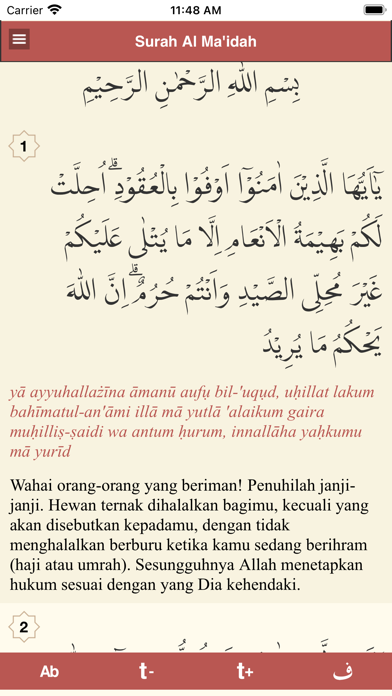 Carrier 11:48 AM
Surah Al Ma'idah
بِسْمِ اللّٰهِ الرَّحْمٰنِ الرَّحِيْمِ
1
يٰٓاَيُّهَا الَّذِيْنَ اٰمَنُوْٓا اَوْفُوْا بِالْعُقُوْدِۗ اُحِلَّتْ
لَكُمْ بَهِيْمَةُ الْاَنْعَامِ اِلَّا مَا يُتْلٰى عَلَيْكُمْ
غَيْرَ مُحِلِّى الصَّيْدِ وَاَنْتُمْ حُرُمٌۗ اِنَّ اللّٰهَ
يَحْكُمُ مَا يُرِيْدُ
yā ayyuhallażīna āmanū aufụ bil-'uqụd, uḥillat lakum
bahīmatul-an'āmi illā mā yutlā 'alaikum gaira
muḥilliṣ-ṣaidi wa antum ḥurum, innallāha yaḥkumu
mā yurīd
Wahai orang-orang yang beriman! Penuhilah janji-
janji. Hewan ternak dihalalkan bagimu, kecuali yang
akan disebutkan kepadamu, dengan tidak
menghalalkan berburu ketika kamu sedang berihram
(haji atau umrah). Sesungguhnya Allah menetapkan
hukum sesuai dengan yang Dia kehendaki.
2
Ab t- t+ ف